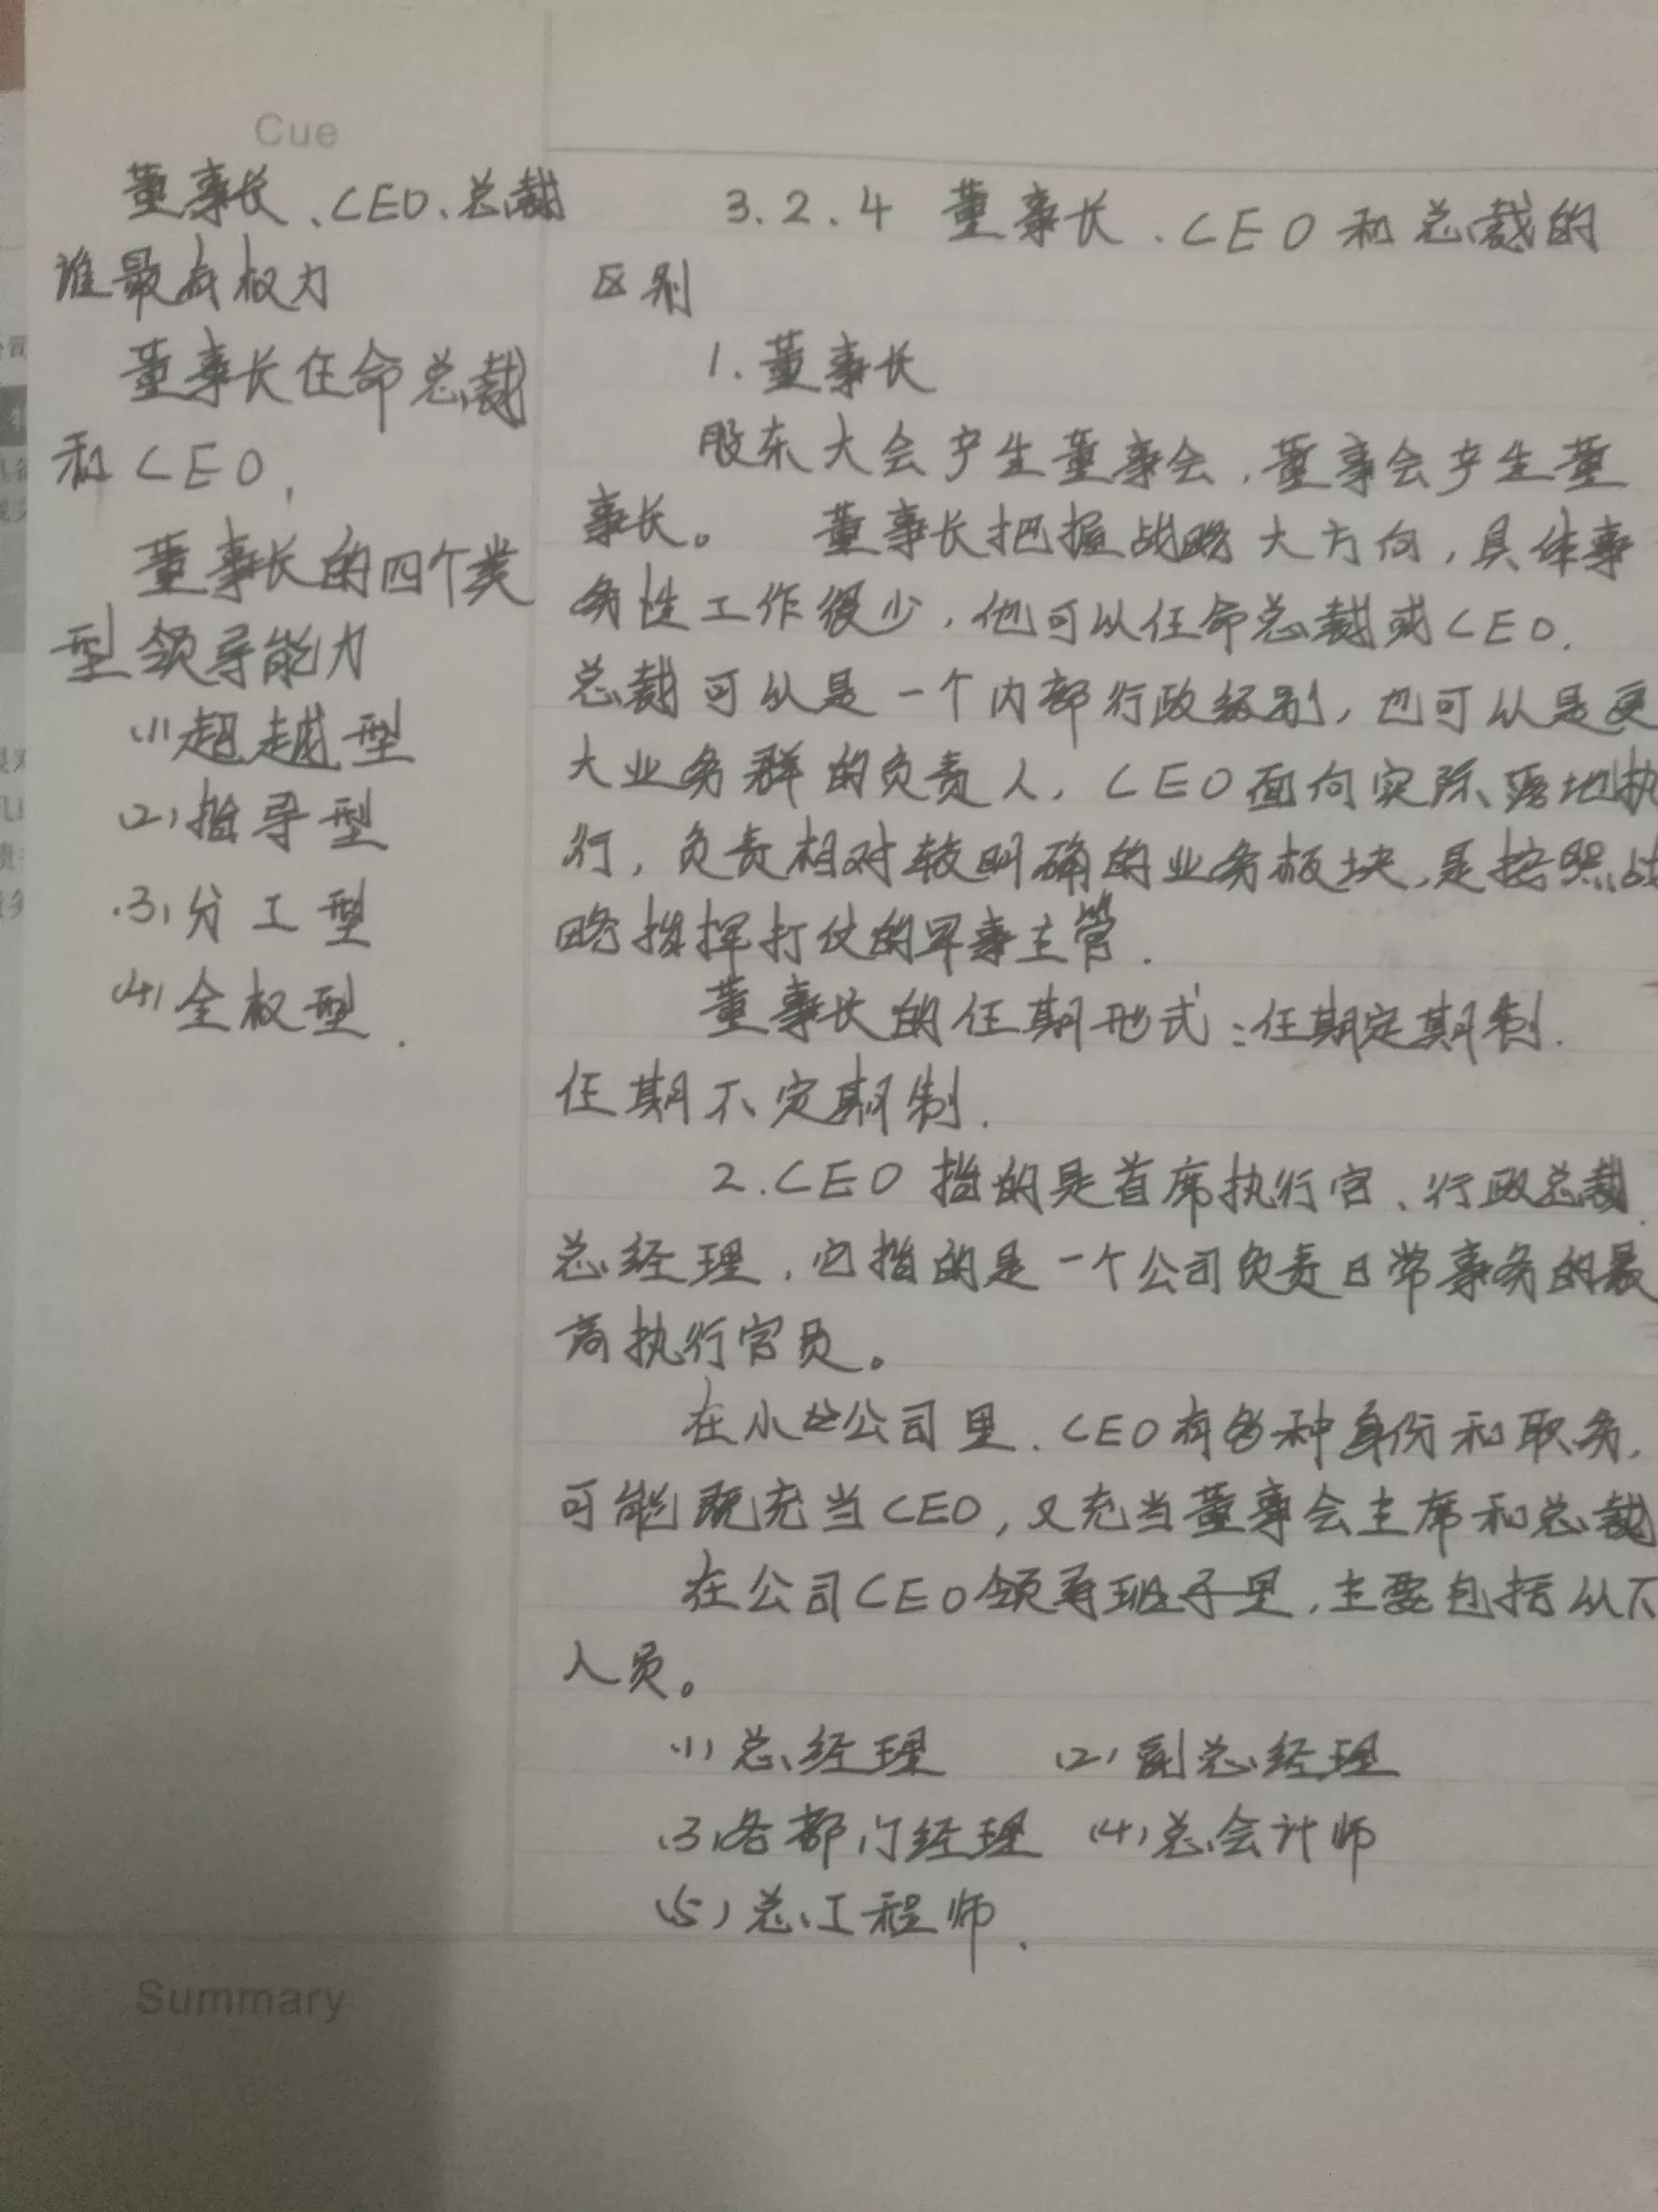 Cue
董事长、CEO、总裁
谁最有权力
董事长任命总裁
和CEO,
董事长的四个类
型领导能力
(1)超越型
(2)指导型
(3)分工型
(4)全权型.
3.2.4 董事长、CEO和总裁的
区别
1.董事长
股东大会产生董事会,董事会产生董
事长。 董事长把握战略大方向,具体事
务性工作很少,他可以任命总裁或CEO.
总裁可以是一个内部行政级别,也可以是更
大业务群的负责人,CEO面向实际落地执
行,负责相对较明确的业务板块,是按照战
略指挥打仗的军事主管.
董事长的任期形式:任期定期制.
任期不定期制.
2.CEO 指的是首席执行官、行政总裁、
总经理,它指的是一个公司负责日常事务的最
高执行官员。
在小公司里,CEO有多种身份和职务,
可能既充当CEO,又充当董事会主席和总裁
在公司CEO领导班子里,主要包括以下
人员。
(1)总经理 (2)副总经理
(3)各部门经理 (4)总会计师
(5)总工程师.
Summary